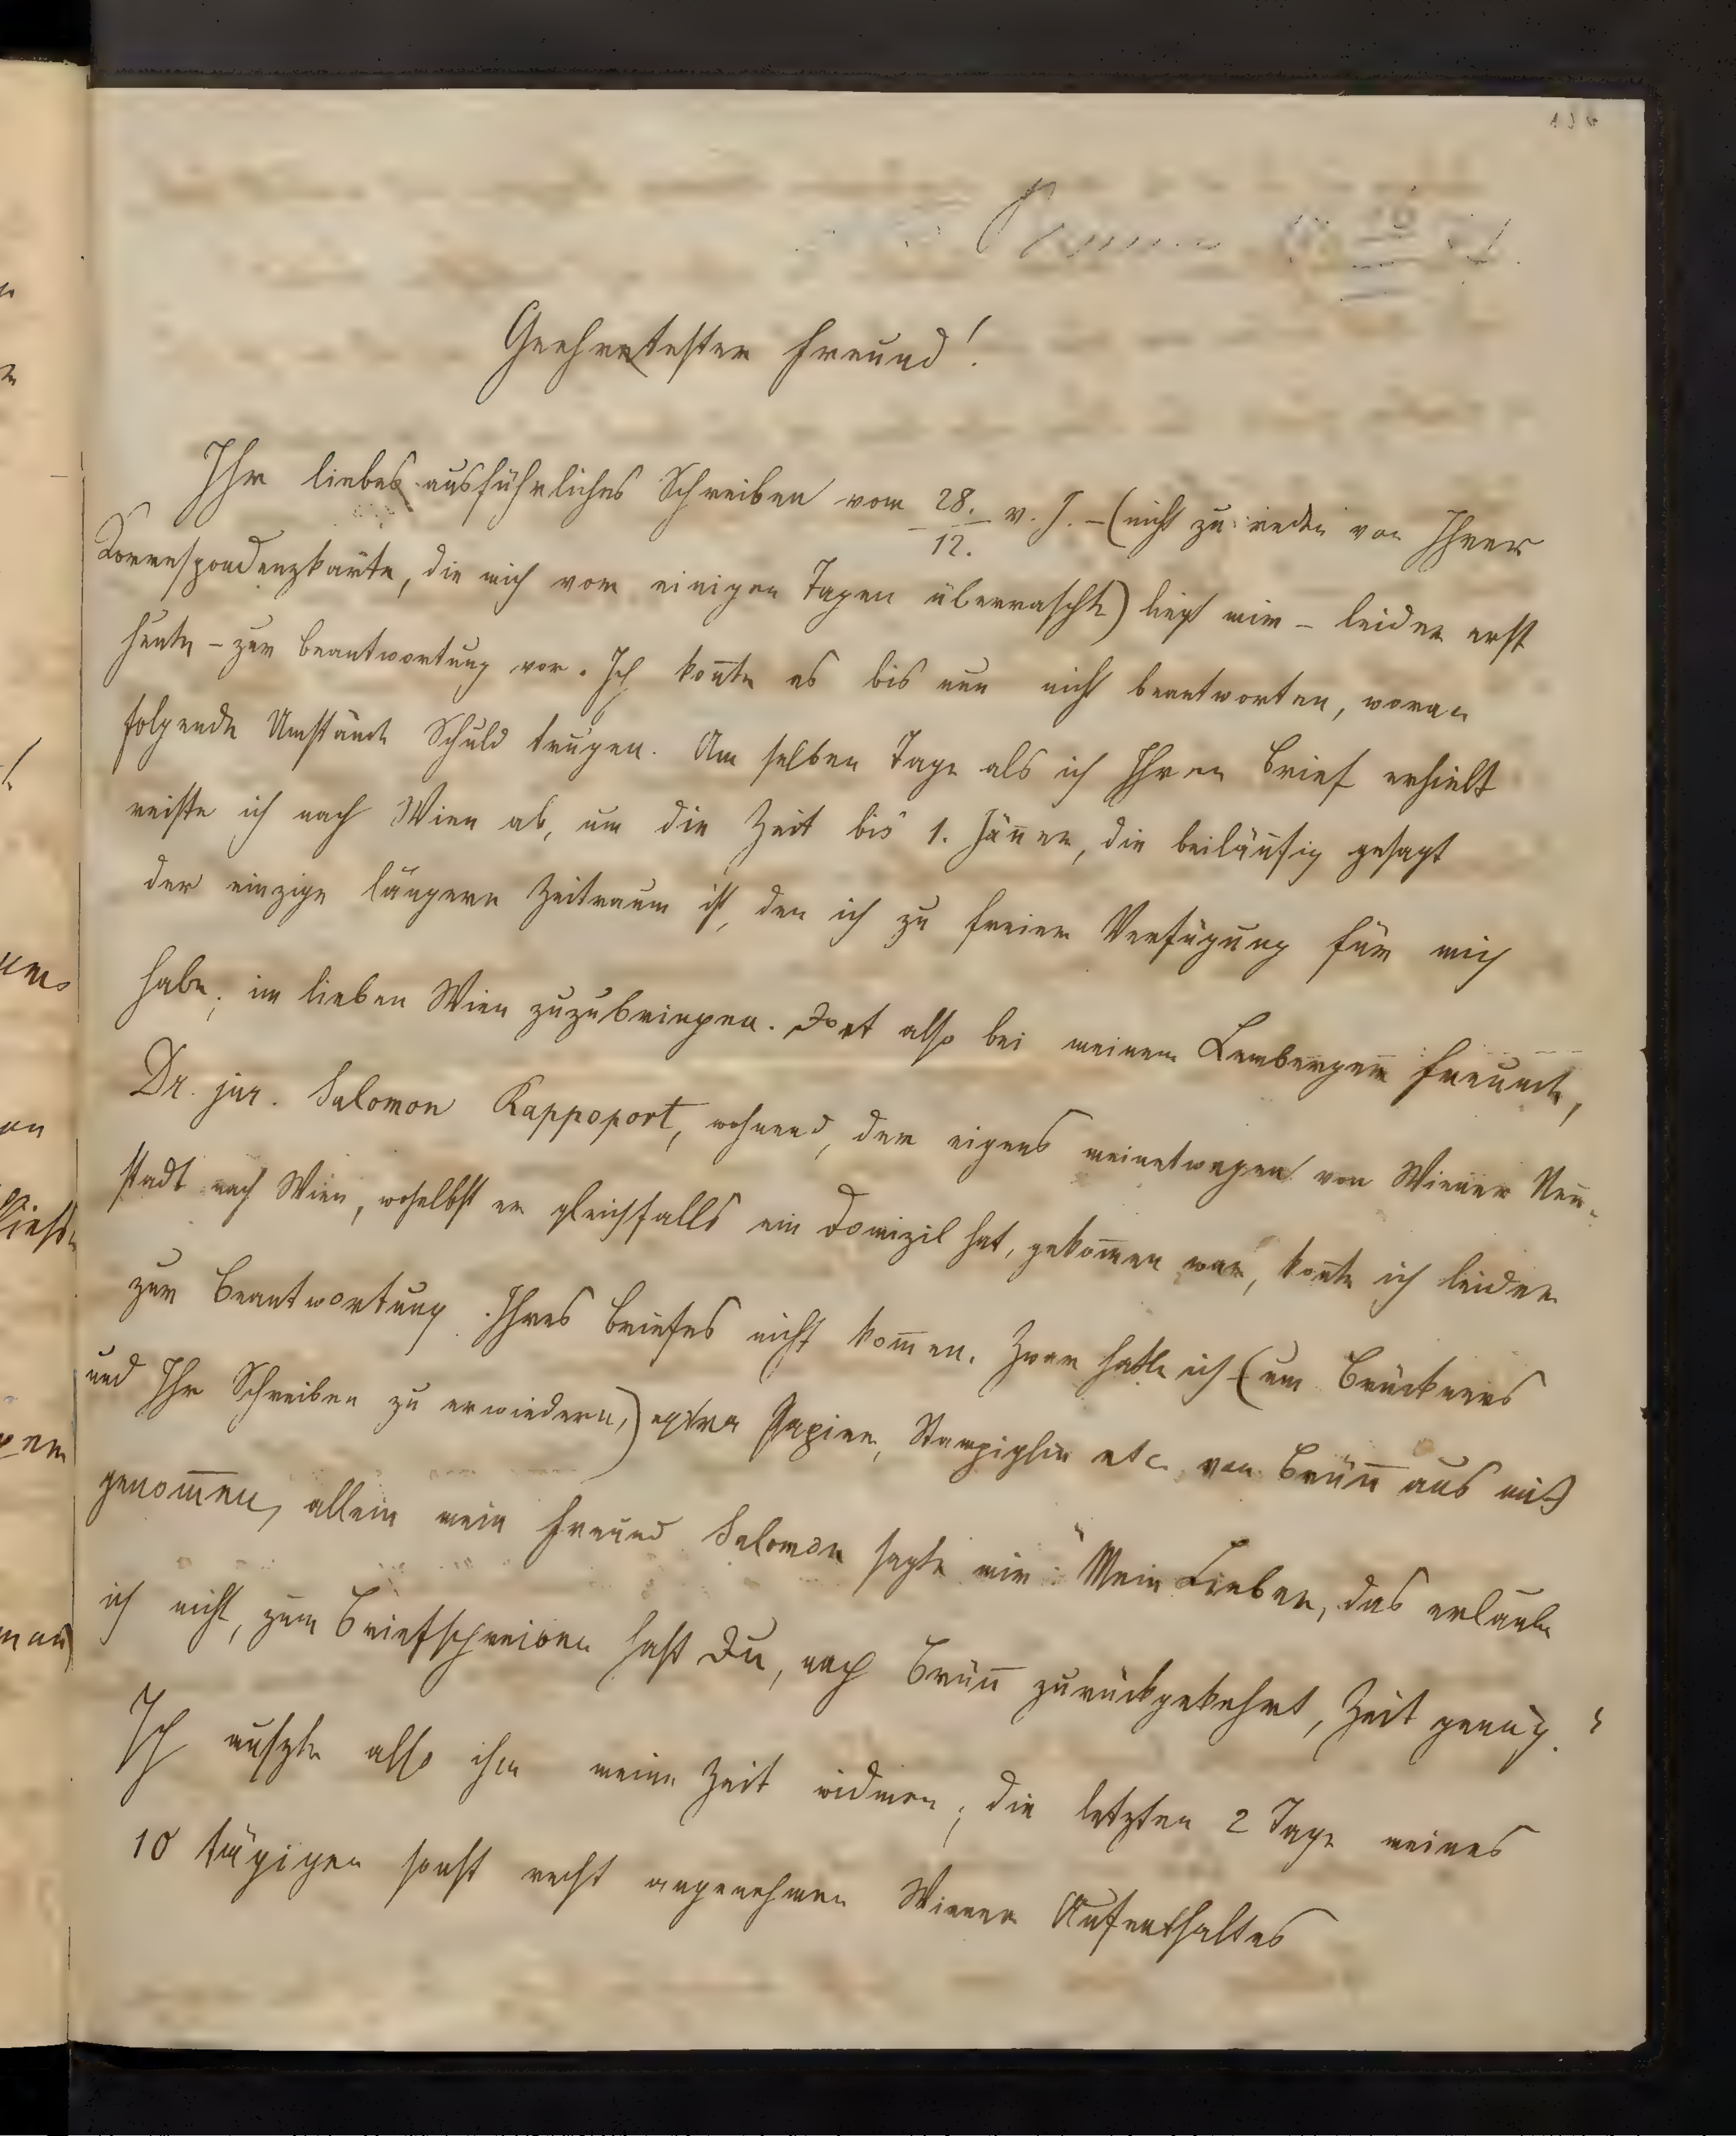 Geehrtester Freund!
Ihr liebes ausführliches Schreiben vom 28./12. v. J. – (nicht zu reden von Ihrer
Korrespondenzkarte, die mich vor einigen Tagen überraschte) liegt mir – leider erst
heute – zur Beantwortung vor. Ich kon̄te es bis nun nicht beantworten, woran
folgende Umstände Schuld trugen. Am selben Tage als ich Ihren Brief erhielt
reiste ich nach Wien ab, um die Zeit bis 1. Jän̄er, die beiläufig gesagt
der einzige längere Zeitraum ist, den ich zu freier Verfügung für mich
habe, im lieben Wien zuzubringen. Dort also bei meinem Lemberger Freunde,
Dr. jur. Salomon Rappoport, wohnend, der eigens meinetwegen von Wiener Neu-
stadt nach Wien, woselbst er gleichfalls ein Domizil hat, gekom̄en war, kon̄te ich leider
zur Beantwortung Ihres Briefes nicht kom̄en. Zwar hatte ich (um Brückners
und Ihr Schreiben zu erwiedern,) extra Papier, Stampiglie etc. von Brün̄ aus mit
genom̄en, allein mein Freund Salomon sagte mir: "Mein Lieber, das erlaube
ich nicht, zum Briefschreiben hast Du, nach Brün̄ zurückgekehrt, Zeit genug."
Ich mußte also ihm meine Zeit widmen; die letzten 2 Tage meines
10 tägigen sonst recht angenehmen Wiener Aufenthaltes